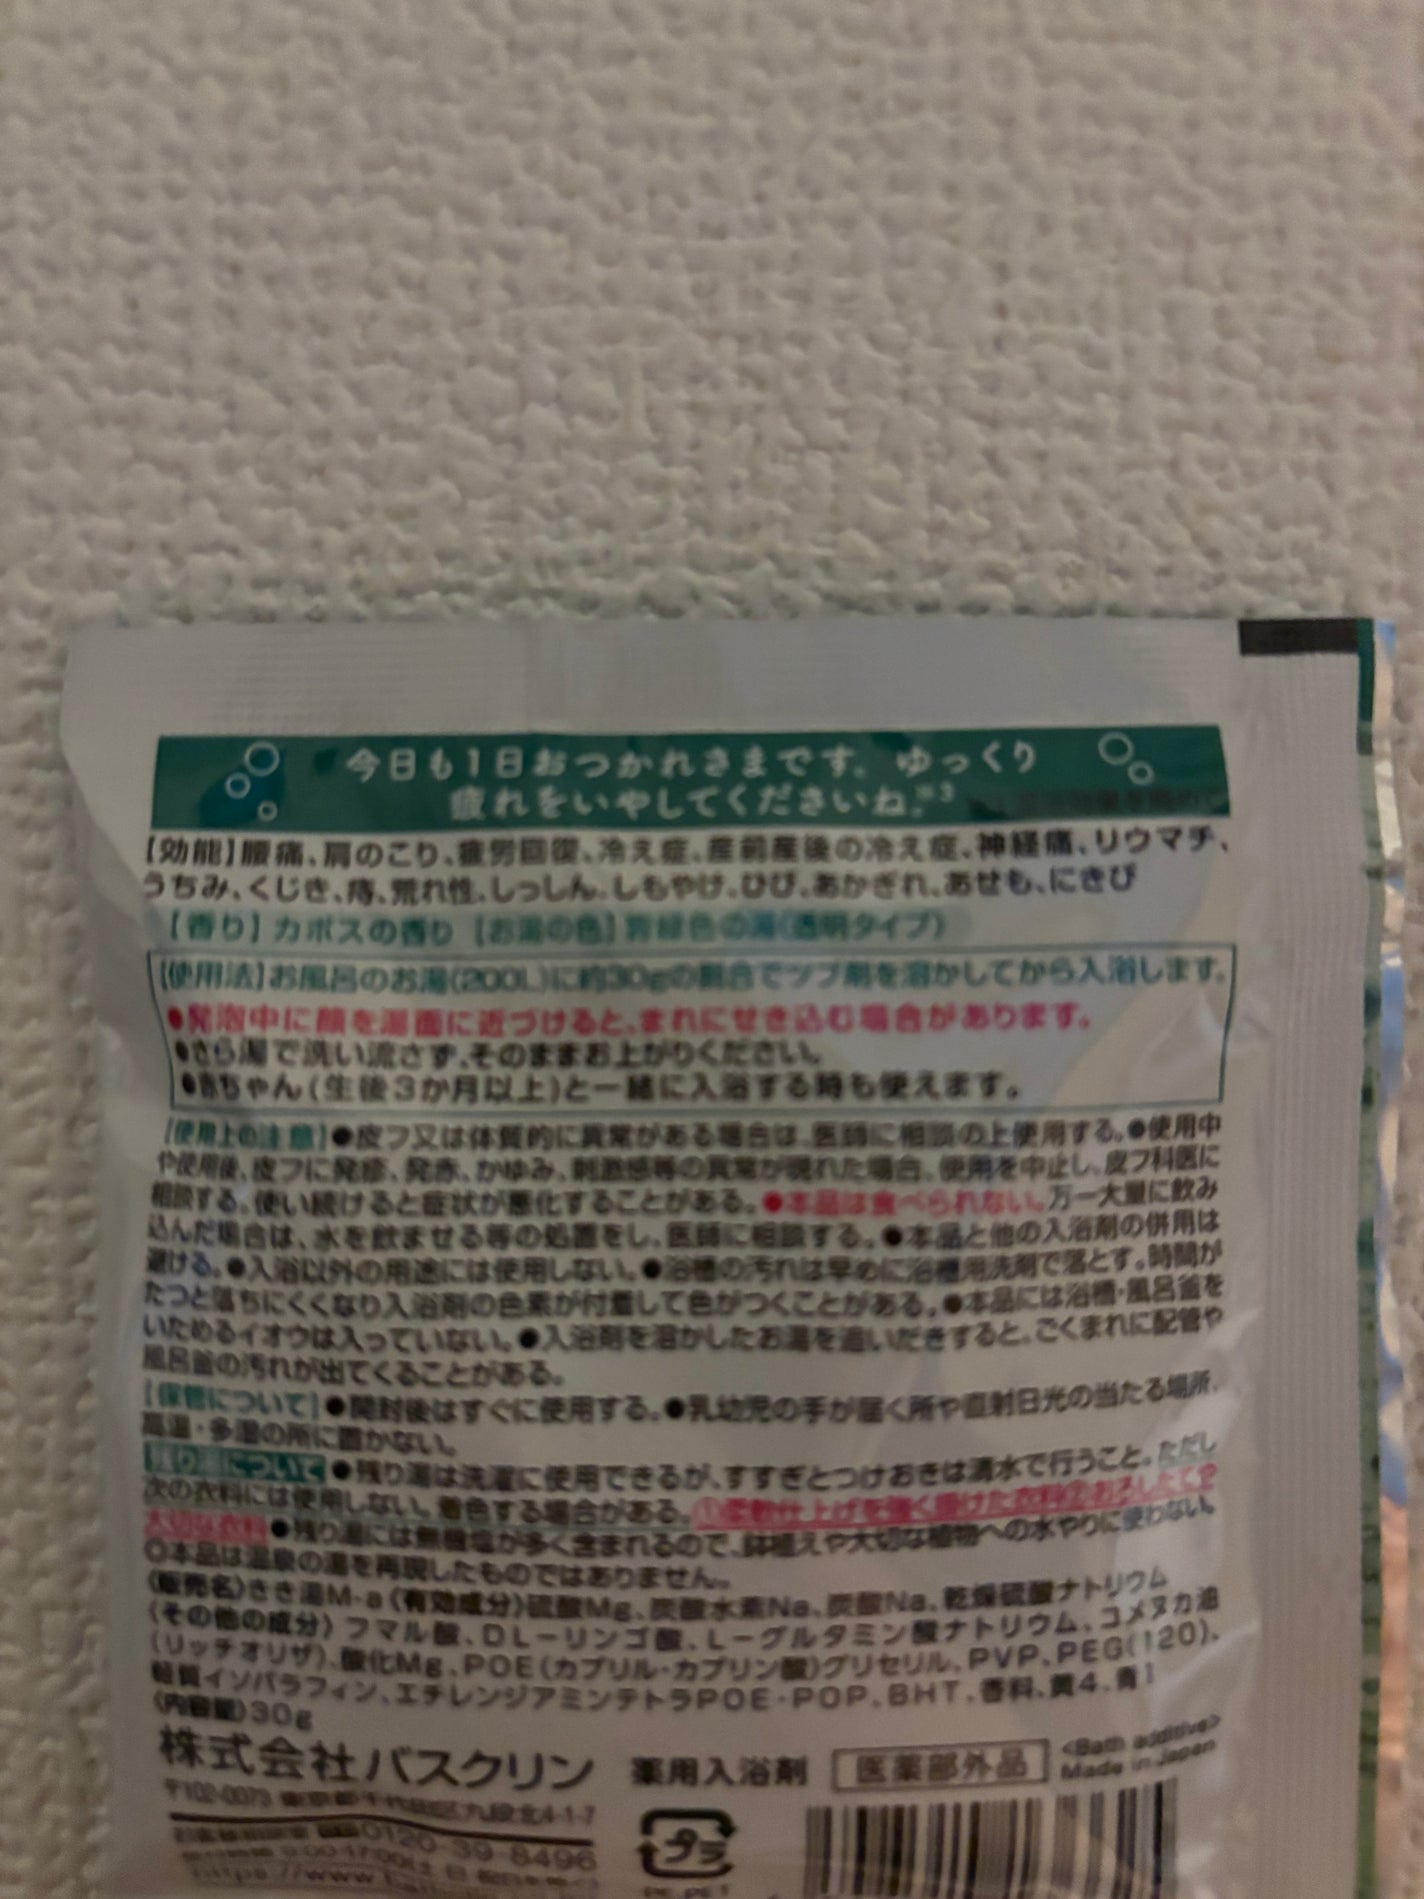 今日も1日おつかれさまです。ゆっくり
疲れをいやしてくださいね。※3
【効能】腰痛、肩のこり、疲労回復、冷え症、産前産後の冷え症、神経痛、リウマチ、
うちみ、くじき、痔、荒れ性、しっしん、しもやけ、ひび、あかぎれ、あせも、にきび
【香り】カボスの香り 【お湯の色】青緑色の湯(透明タイプ)
【使用法】お風呂のお湯(200L)に約30gの割合でツブ剤を溶かしてから入浴します。
●発泡中に顔を湯面に近づけると、まれにせき込む場合があります。
●さら湯で洗い流さず、そのままお上がりください。
●赤ちゃん(生後3か月以上)と一緒に入浴する時も使えます。
【使用上の注意】●皮フ又は体質的に異常がある場合は、医師に相談の上使用する。●使用中
や使用後、皮フに発疹、発赤、かゆみ、刺激感等の異常が現れた場合、使用を中止し、皮フ科医に
相談する。使い続けると症状が悪化することがある。●本品は食べられない。万一大量に飲み
込んだ場合は、水を飲ませる等の処置をし、医師に相談する。●本品と他の入浴剤の併用は
避ける。●入浴以外の用途には使用しない。●浴槽の汚れは早めに浴槽用洗剤で落とす。時間が
たつと落ちにくくなり入浴剤の色素が付着して色がつくことがある。●本品には浴槽・風呂釜を
いためるイオウは入っていない。●入浴剤を溶かしたお湯を追いだきすると、ごくまれに配管や
風呂釜の汚れが出てくることがある。
【保管について】●開封後はすぐに使用する。●乳幼児の手が届く所や直射日光の当たる場所、
高温・多湿の所に置かない。
残り湯について ●残り湯は洗濯に使用できるが、すすぎとつけおきは清水で行うこと。ただし
次の衣料には使用しない。着色する場合がある。①柔軟仕上げを強く掛けた衣料②おろしたてや
大切な衣料●残り湯には無機塩が多く含まれるので、鉢植えや大切な植物への水やりに使わない。
◎本品は温泉の湯を再現したものではありません。
〈販売名〉きき湯M-a〈有効成分〉硫酸Mg、炭酸水素Na、炭酸Na、乾燥硫酸ナトリウム
〈その他の成分〉フマル酸、DL－リンゴ酸、L－グルタミン酸ナトリウム、コメヌカ油
(リッチオリザ)、酸化Mg、POE(カプリル・カプリン酸)グリセリル、PVP、PEG(120)、
軽質イソパラフィン、エチレンジアミンテトラPOE・POP、BHT、香料、黄4、青1
〈内容量〉30g
株式会社バスクリン 薬用入浴剤 医薬部外品 <Bath additive>
Made in Japan
〒102-0073 東京都千代田区九段北4-1-7
0120-39-8496
プラ